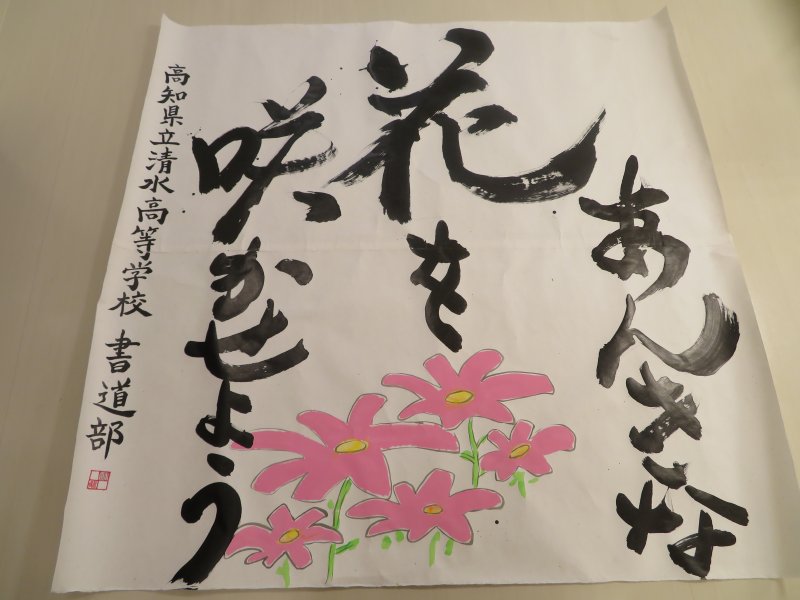 あんきな
花を
咲かせよう
高知県立清水高等学校 書道部